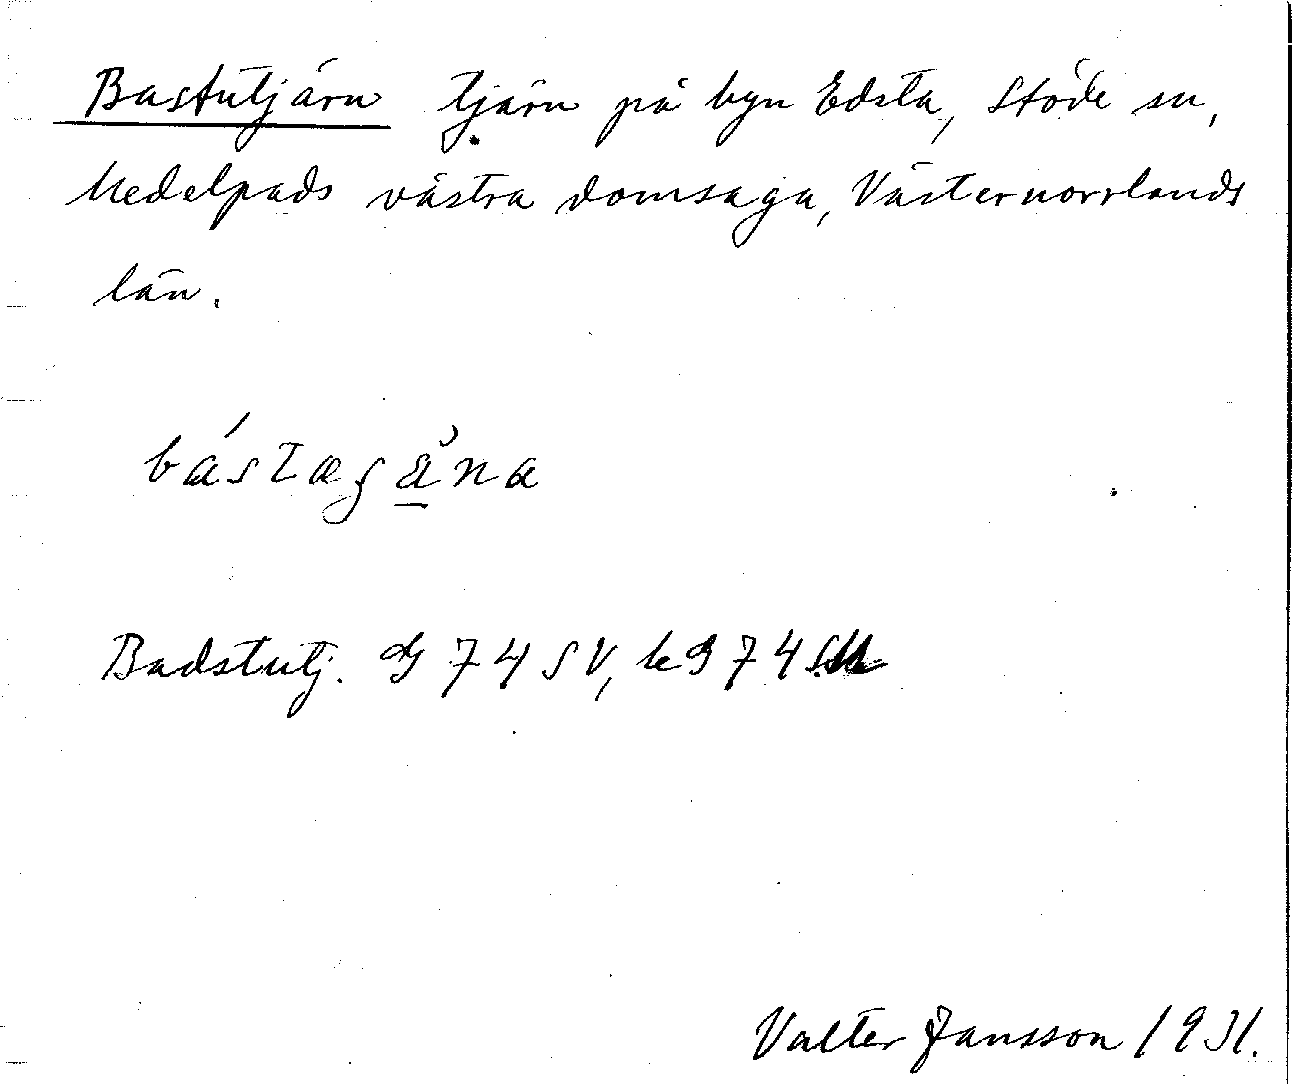 Bastutjärn tjärn på byn Edsta, Stöde sn,
Medelpads västra domsaga, Västernorrlands
län.
Badstutj. G 74 SV, k G 74
Valter Jansson 1931.